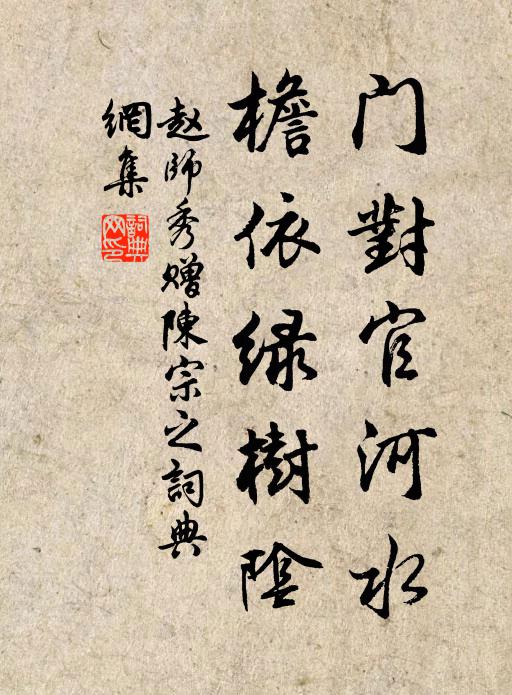 门對官河水
檐依緑樹陰
赵師秀赠陳宗之詞典
網集
詞典網印